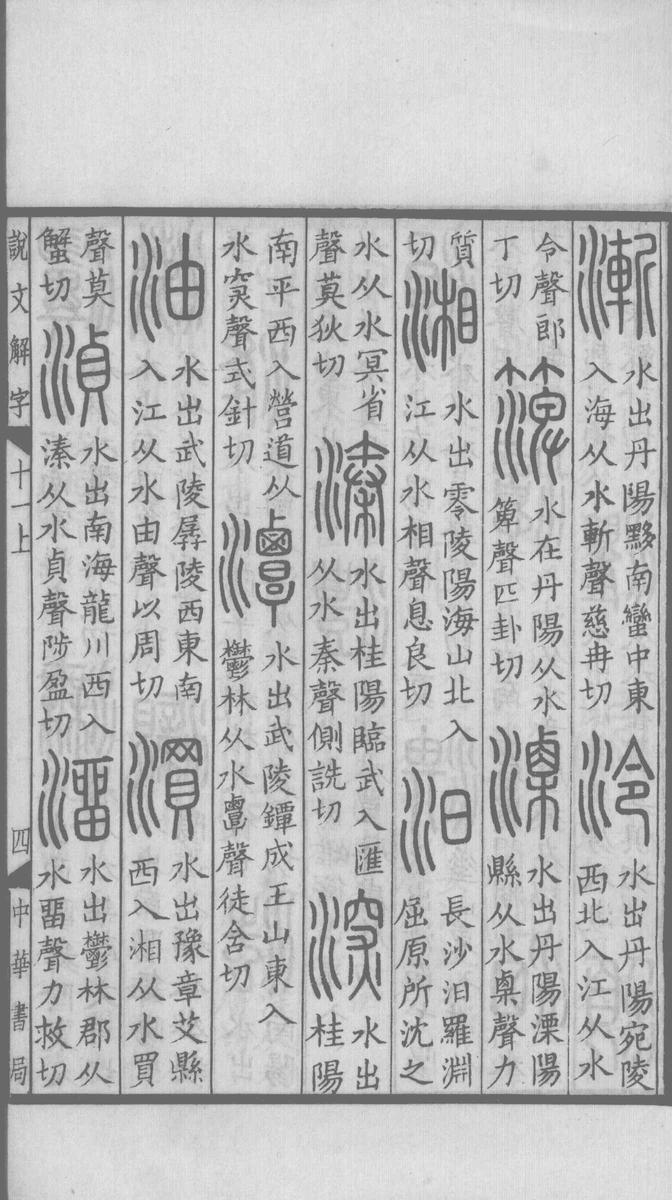 漸水出丹陽黟南蠻中東入海从水斬聲慈冉切泠水出丹陽宛陵西北入江从水
令聲郎丁切水在丹陽从水箄聲匹卦切溧水出丹陽溧陽縣从水㮚聲力
質切湘水出零陵陽海山北入江从水相聲息良切汨長沙汨羅淵屈原所沈之
水从水冥省聲莫狄切溱水出桂陽臨武入匯从水秦聲側詵切深水出桂陽
南平西入營道从水罙聲式針切潭水出武陵鐔成王山東入鬱林从水𧟹聲徒含切
油水出武陵孱陵西東南入江从水由聲以周切㵋水出豫章艾縣西入湘从水買
聲莫蟹切湞水出南海龍川西入溱从水貞聲陟盈切溜水出鬱林郡从水畱聲力救切
說文解字 十一上 四 中華書局